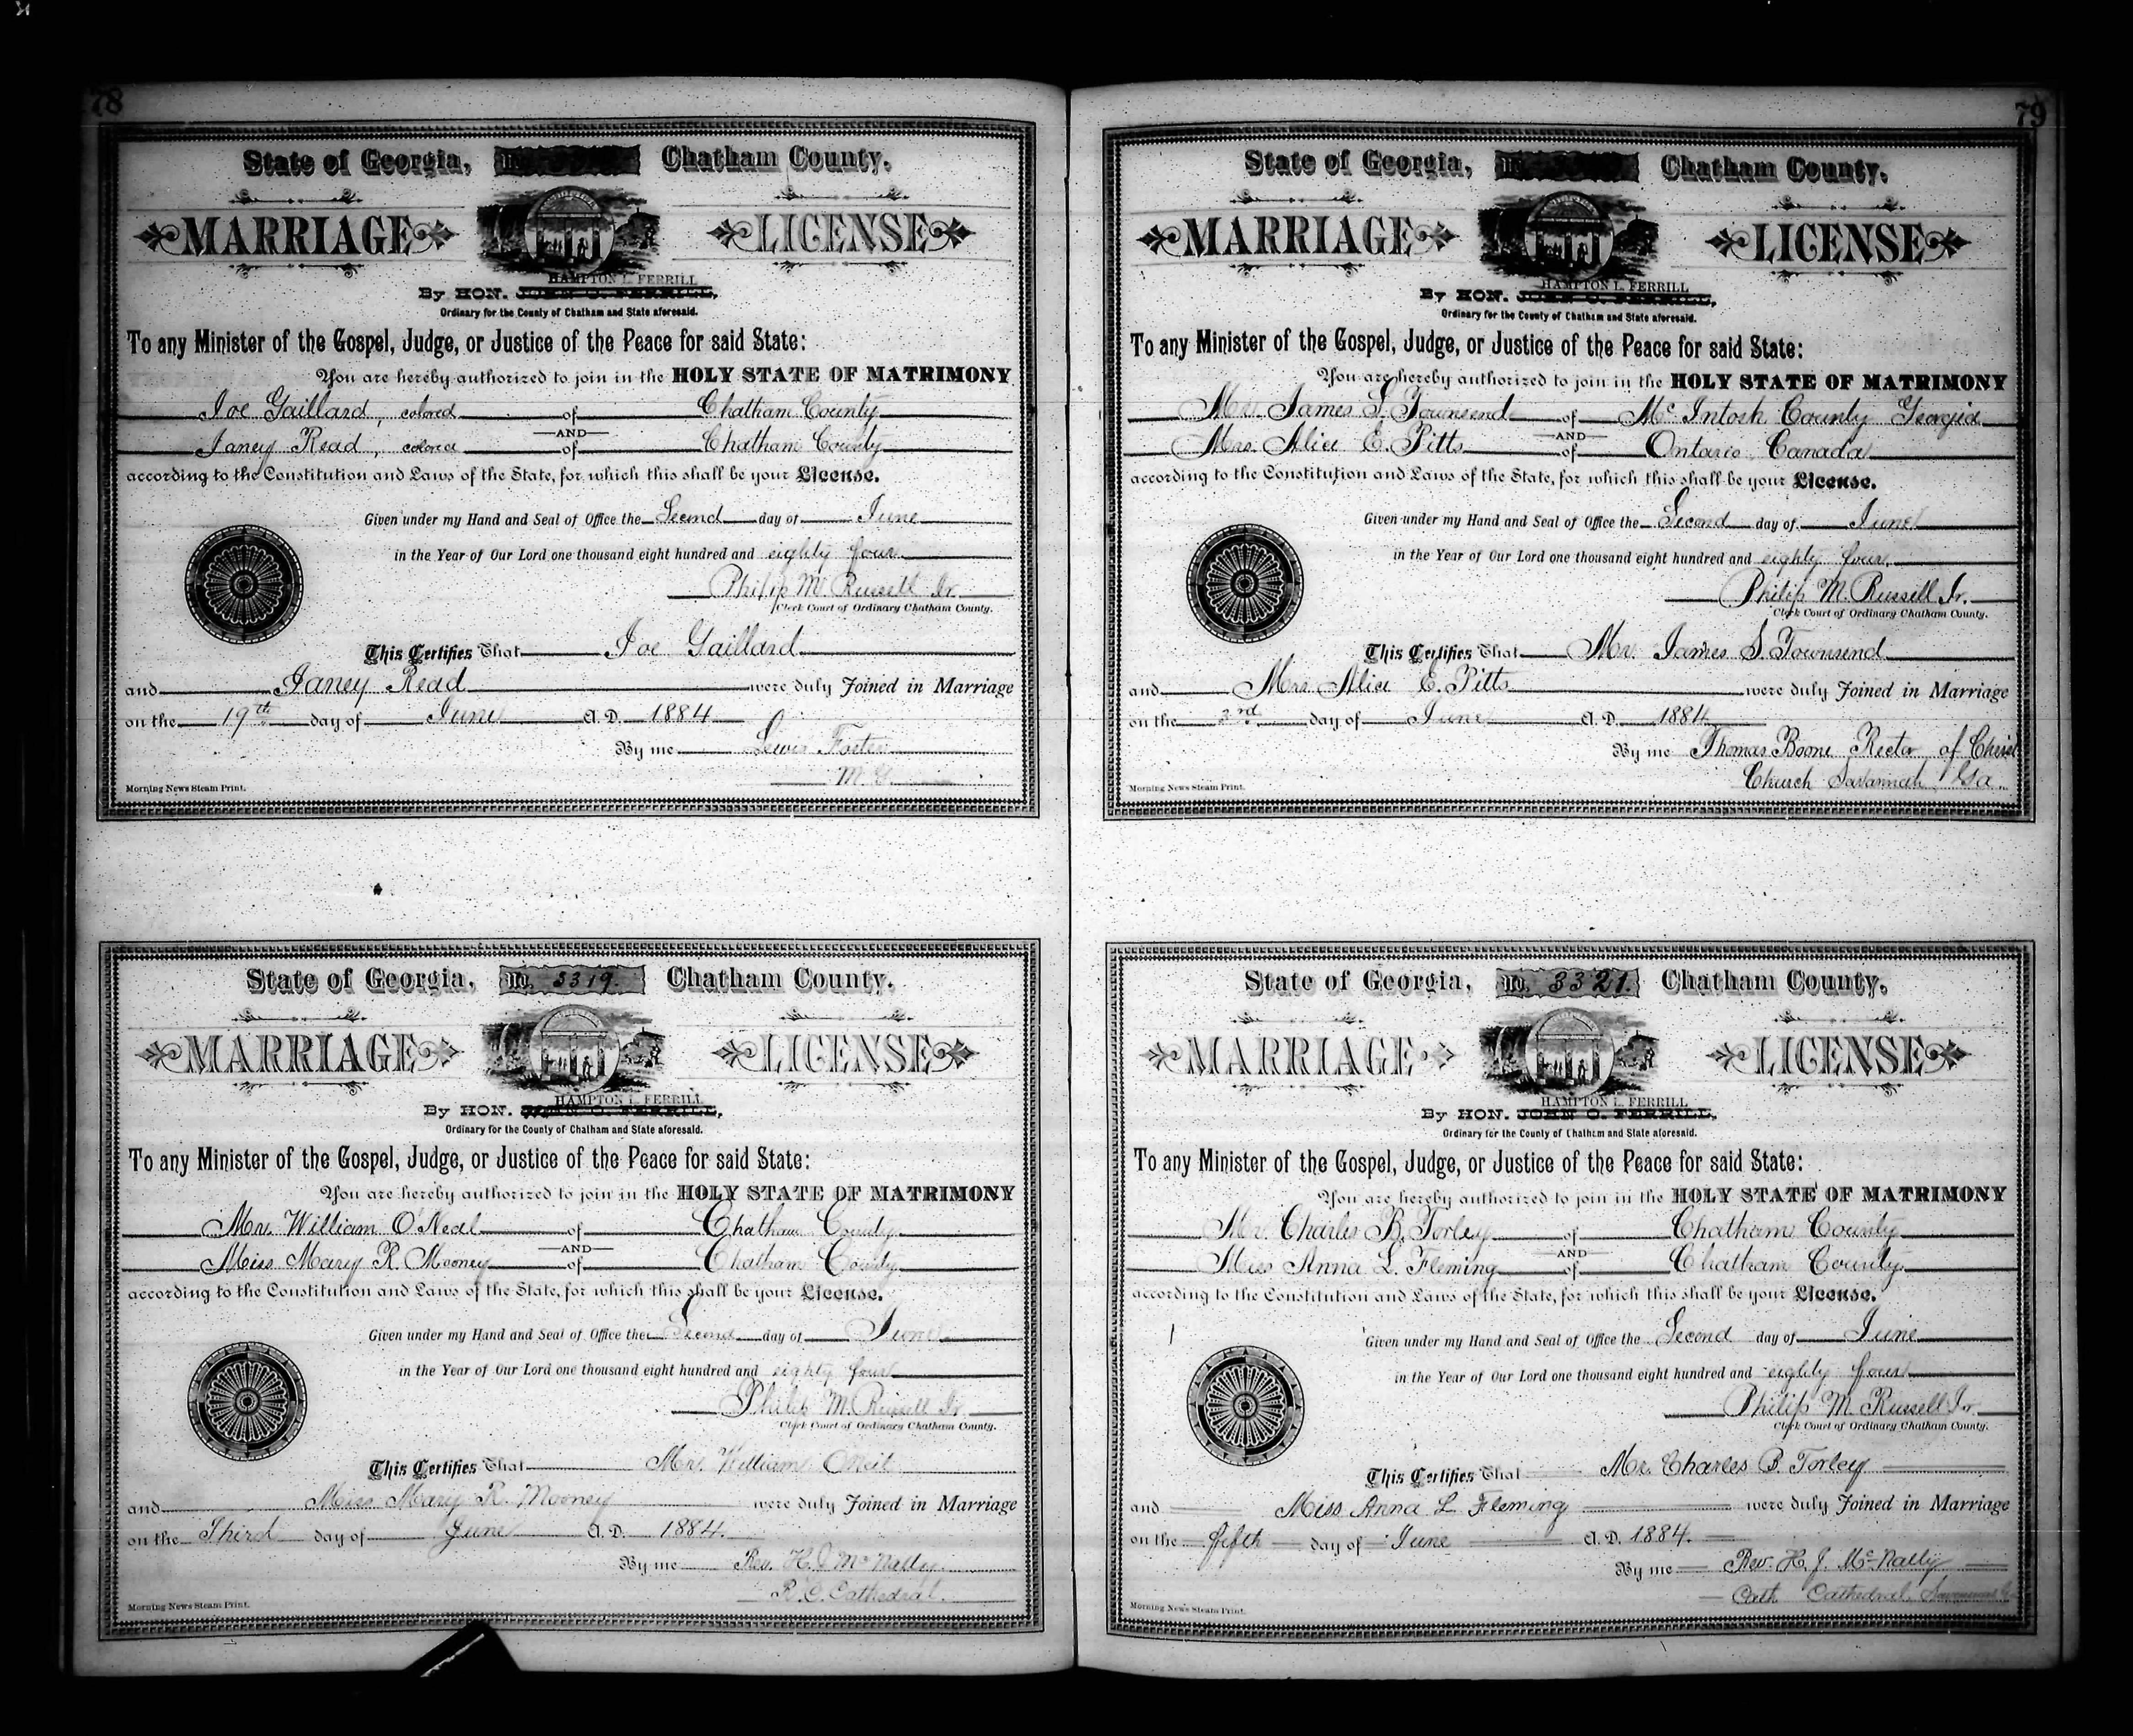 78
State of Georgia, No. Chatham County.
MARRIAGE LICENSE
HAMPTON L. FERRILL
By HON. JOHN O. FERRILL,
Ordinary for the County of Chatham and State aforesaid.
To any Minister of the Gospel, Judge, or Justice of the Peace for said State:
You are hereby authorized to join in the HOLY STATE OF MATRIMONY
Joe Gaillard, colored of Chatham County
AND
Janey Read, colored of Chatham County
according to the Constitution and Laws of the State, for which this shall be your License.
Given under my Hand and Seal of Office the Second day of June
in the Year of Our Lord one thousand eight hundred and eighty four
Philip M. Russell Jr.
Clerk Court of Ordinary Chatham County.
This Certifies That Joe Gaillard
and Janey Read were duly Joined in Marriage
on the 19th day of June A. D. 1884
By me Lewis Foster
M. G.
Morning News Steam Print.
State of Georgia, No. 3319. Chatham County.
MARRIAGE LICENSE
HAMPTON L. FERRILL
By HON. JOHN O. FERRILL,
Ordinary for the County of Chatham and State aforesaid.
To any Minister of the Gospel, Judge, or Justice of the Peace for said State:
You are hereby authorized to join in the HOLY STATE OF MATRIMONY
Mr. William O'Neal of Chatham County
AND
Miss Mary R. Mooney of Chatham County
according to the Constitution and Laws of the State, for which this shall be your License.
Given under my Hand and Seal of Office the Second day of June
in the Year of Our Lord one thousand eight hundred and eighty four
Philip M. Russell Jr.
Clerk Court of Ordinary Chatham County.
This Certifies That Mr. William O'Neil
and Miss Mary R. Mooney were duly Joined in Marriage
on the Third day of June A. D. 1884.
By me Rev. H. J. McNally
R. C. Cathedral.
Morning News Steam Print.
79
State of Georgia, No. Chatham County.
MARRIAGE LICENSE
HAMPTON L. FERRILL
By HON. JOHN O. FERRILL,
Ordinary for the County of Chatham and State aforesaid.
To any Minister of the Gospel, Judge, or Justice of the Peace for said State:
You are hereby authorized to join in the HOLY STATE OF MATRIMONY
Mr. James S. Townsend of McIntosh County Georgia
AND
Mrs. Alice E. Pitts of Ontario, Canada
according to the Constitution and Laws of the State, for which this shall be your License.
Given under my Hand and Seal of Office the Second day of June
in the Year of Our Lord one thousand eight hundred and eighty four.
Philip M. Russell Jr.
Clerk Court of Ordinary Chatham County.
This Certifies That Mr. James S. Townsend
and Mrs Alice E. Pitts were duly Joined in Marriage
on the 3rd day of June A. D. 1884
By me Thomas Boone Rector of Christ
Church Savannah Ga.
Morning News Steam Print.
State of Georgia, No. 3321. Chatham County.
MARRIAGE LICENSE
HAMPTON L. FERRILL
By HON. JOHN O. FERRILL,
Ordinary for the County of Chatham and State aforesaid.
To any Minister of the Gospel, Judge, or Justice of the Peace for said State:
You are hereby authorized to join in the HOLY STATE OF MATRIMONY
Mr. Charles B. Torley of Chatham County
AND
Miss Anna L. Fleming of Chatham County
according to the Constitution and Laws of the State, for which this shall be your License.
Given under my Hand and Seal of Office the Second day of June
in the Year of Our Lord one thousand eight hundred and eighty four
Philip M. Russell Jr.
Clerk Court of Ordinary Chatham County.
This Certifies That Mr. Charles B. Torley
and Miss Anna L. Fleming were duly Joined in Marriage
on the fifth day of June A. D. 1884.
By me Rev. H. J. McNally
Cath. Cathedral,
Morning News Steam Print.